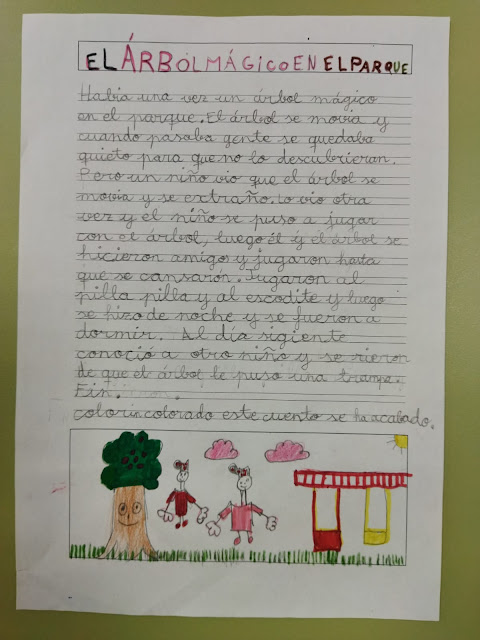 EL ÁRBOL MÁGICO EN EL PARQUE
Había una vez un árbol mágico
en el parque. El árbol se movia y
cuando pasaba gente se quedaba
quieto para que no lo descubrieran.
Pero un niño vio que el árbol se
movia y se extraño. lo vio otra
vez y el niño se puso a jugar
con el árbol, luego él y el árbol se
hicieron amigos y jugaron hasta
que se cansarón. Jugaron al
pilla pilla y al escodite y luego
se hizo de noche y se fueron a
dormir. Al día sigiente
conoció a otro niño y se rieron
de que el árbol le puso una trampa.
Fin.
colorin colorado este cuento se ha acabado.